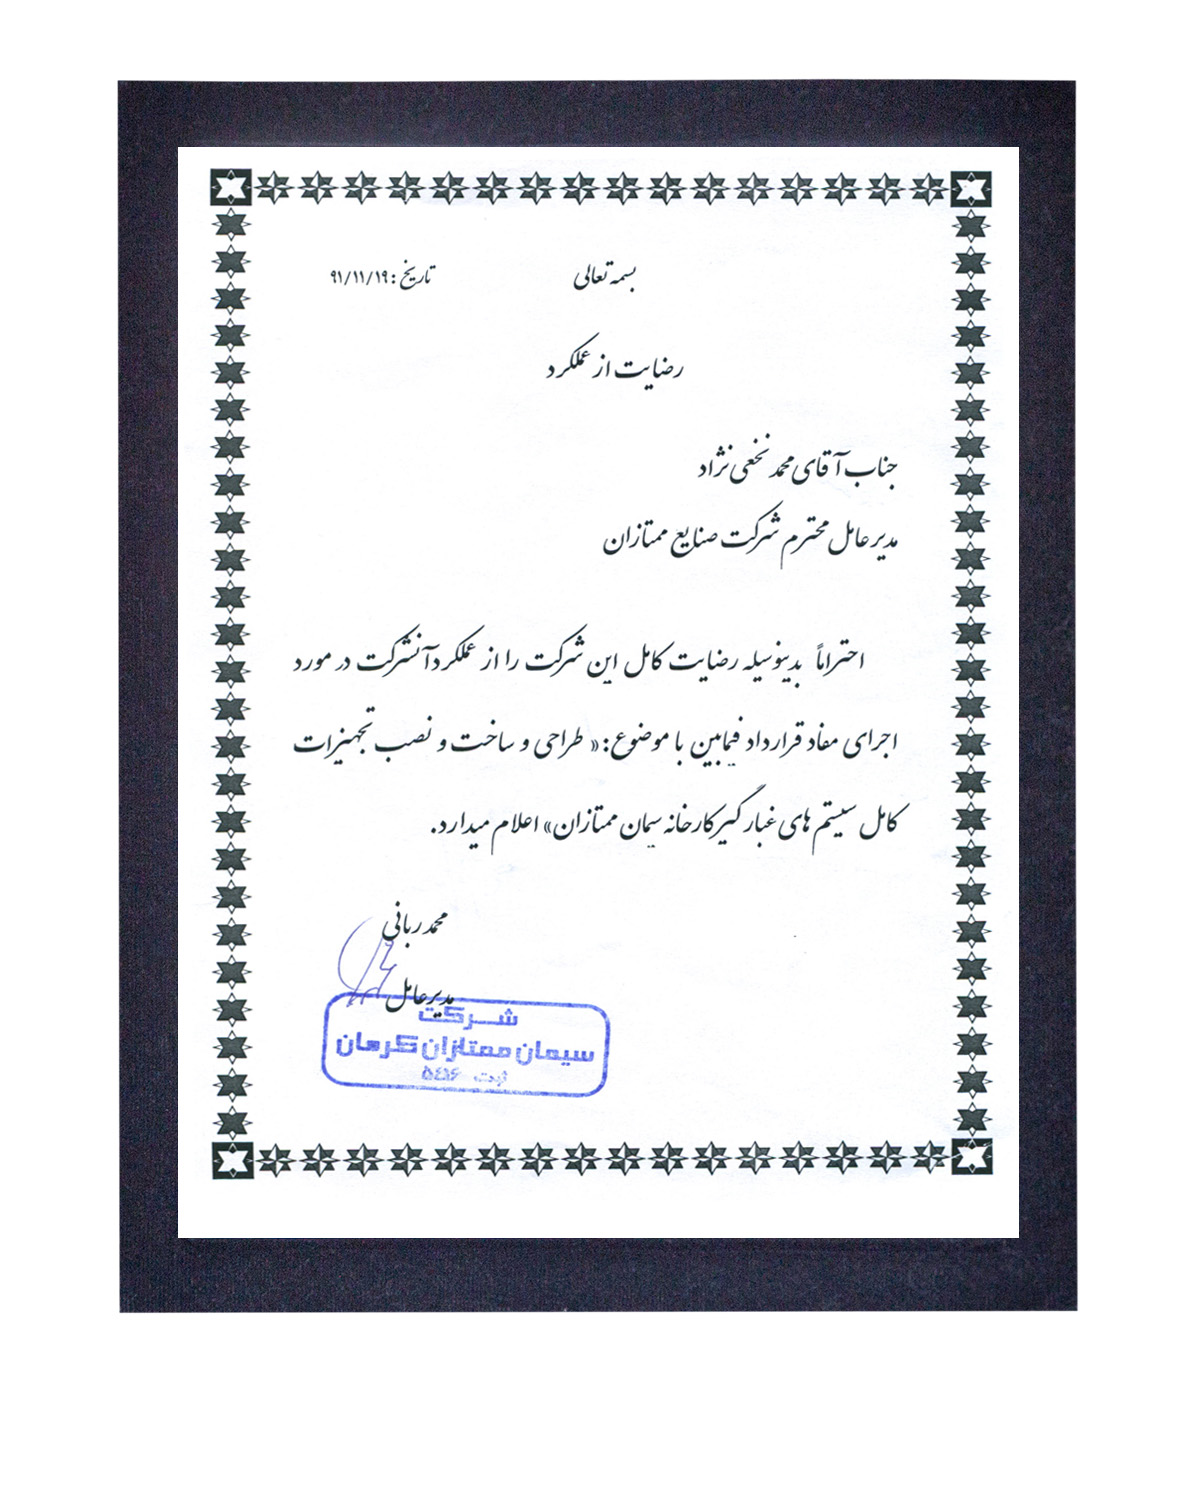 بسمه تعالی
تاریخ: ۹۱/۱۱/۱۹
رضایت از عملکرد
جناب آقای محمد نخعی نژاد
مدیر عامل محترم شرکت صنایع ممتازان
احتراماً بدینوسیله رضایت کامل این شرکت را از عملکرد آنشرکت در مورد
اجرای مفاد قرارداد فیمابین با موضوع: « طراحی و ساخت و نصب تجهیزات
کامل سیستم های غبار گیر کارخانه سیمان ممتازان» اعلام میدارد.
محمد ربانی
مدیر عامل
شرکت
سیمان ممتازان کرمان
ثبت